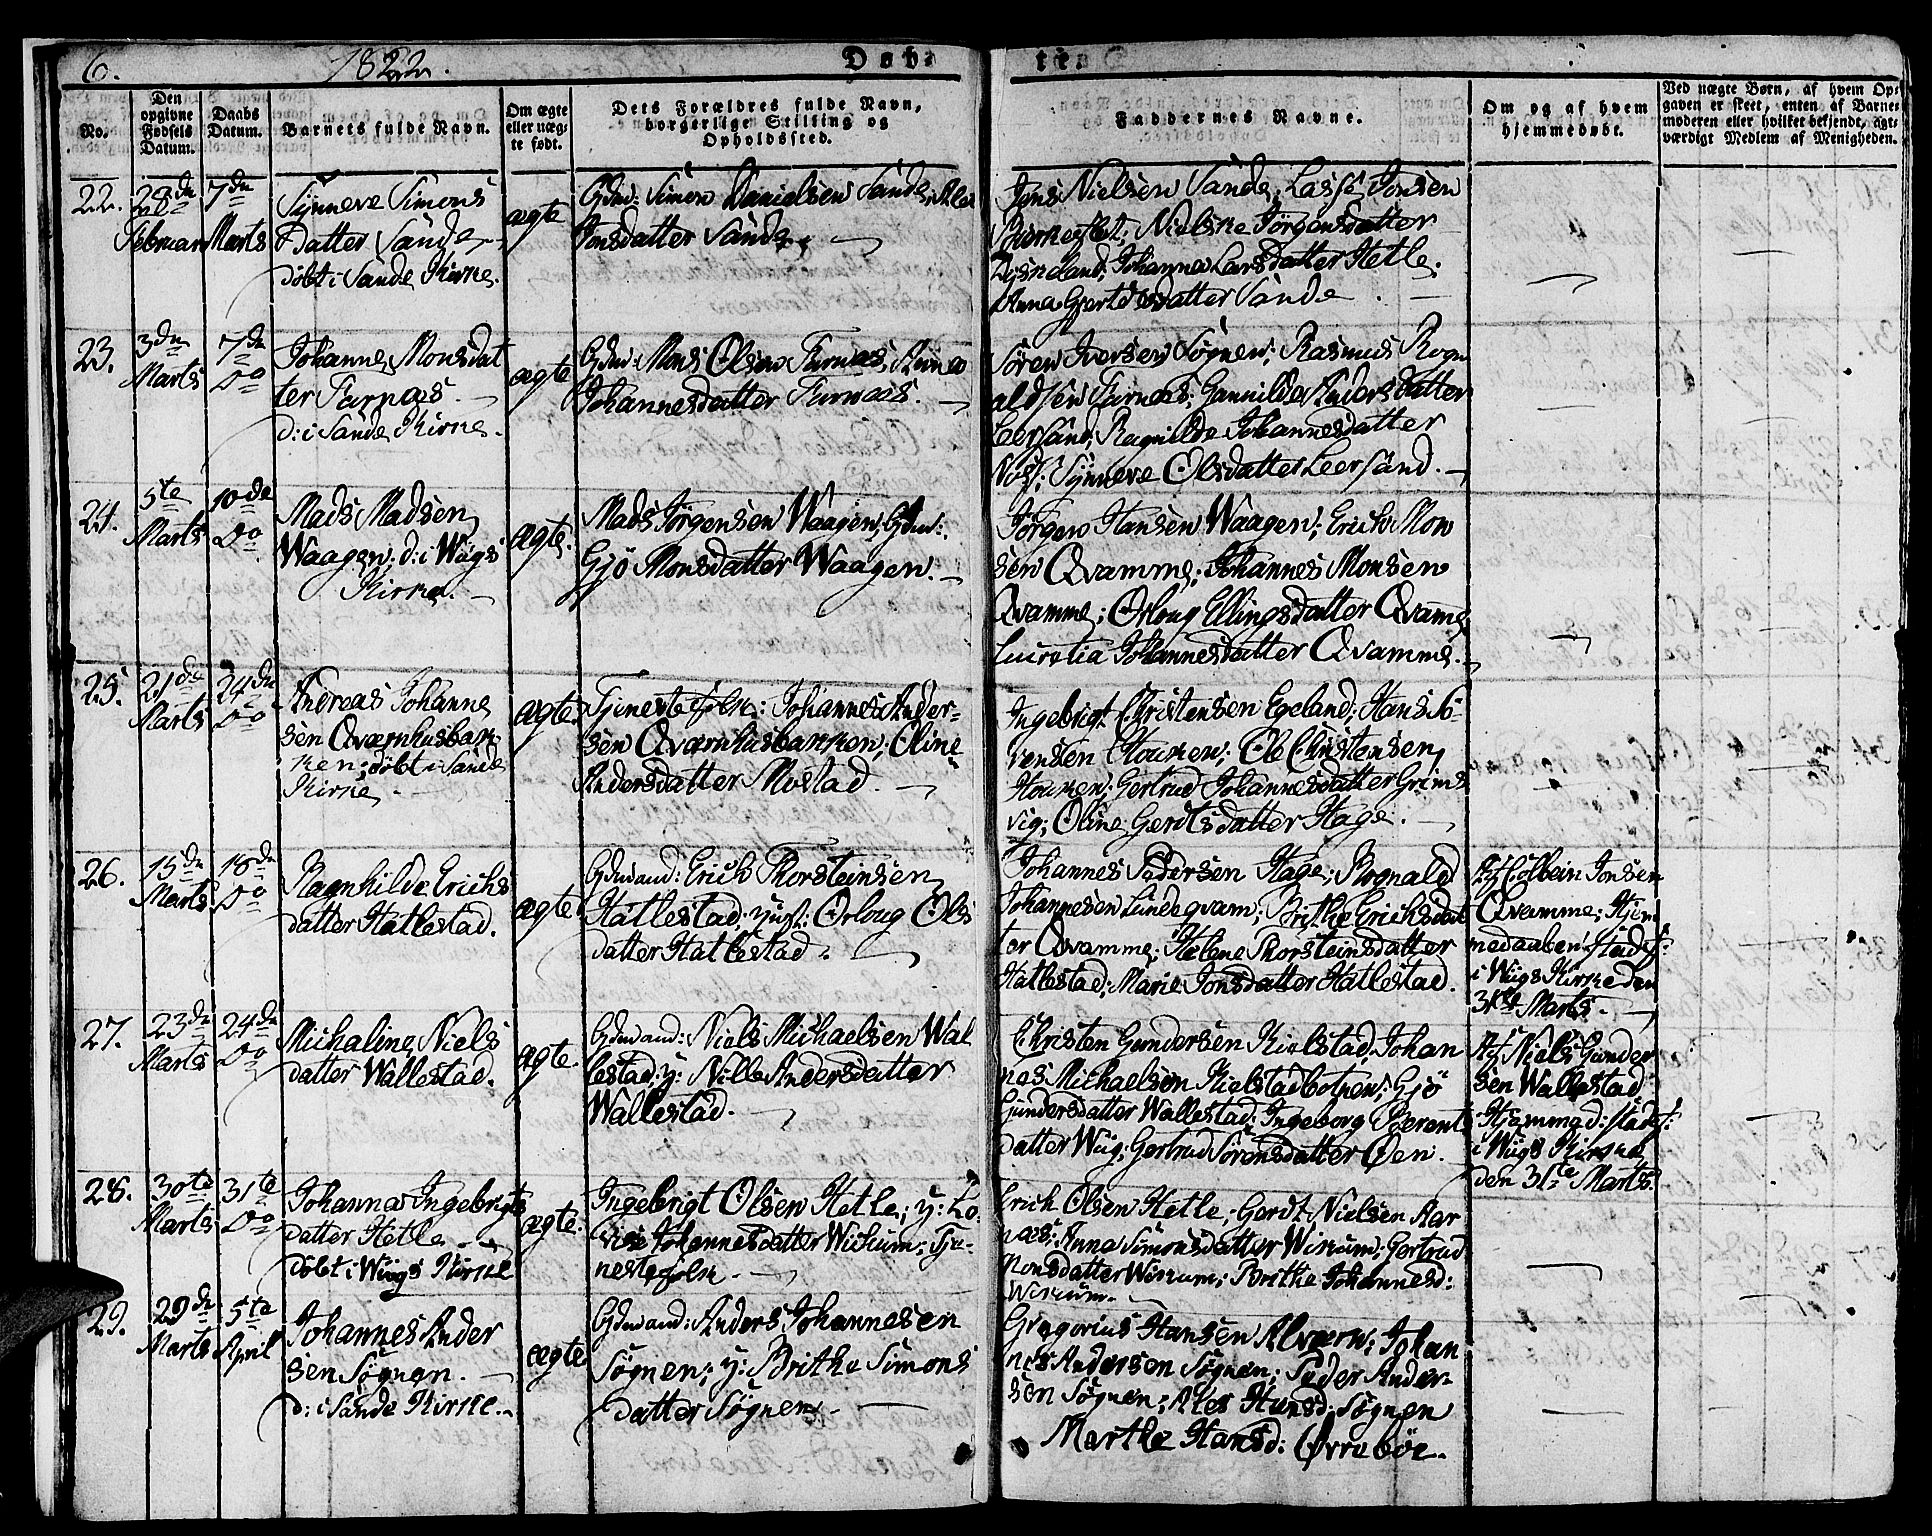 6. 1822. Døb- te.
No.
Den opgivne Fødsels Datum.
Daabs Datum.
Barnets fulde Navn.
Om ægte eller uægte født.
Dets Forældres fulde Navn, borgerlige Stilling og Opholdssted.
Faddernes Navne.
Om og af hvem hjemmedøbt.
Ved uægte Børn, af hvem Opgaven er skeet, enten af Barnemoderen eller hvilket bekjendt, agtværdigt Medlem af Menigheden.
22.
28de
Februar
7de
Marts
Synneve Simons
Datter Sande
döbt i Sande Kirke.
ægte
Gdmd: Simon Danielsen Sande,
Jonsdatter Sande.
Jens Nielsen Sande; Lasse Jonsen
Nielske Jörgensdatter
Johanna Larsdatter Hetle;
Anna Gjertsdatter Sande.
23.
3de
Marts
7de
Do
Johanne Monsdat
ter Furnæs.
d: i Sande Kirke.
ægte
Gdmd: Mons Olsen Furnæs, Anna
Johannesdatter Furnæs.
Sören Iversen Søgnen; Rasmus Rogn
aldsen Furnæs; Gunnilde Andersdatter
Leersand; Ragnilde Johannesdatter
Synneve Olsdatter Leersand.
24.
5te
Marts
10de
Do
Mads Madsen
Waagen; d: i Wiigs
Kirke.
ægte.
Mads Jörgensen Waagen, Gdmd:
Gjö Monsdatter Waagen.
Jörgen Hansen Waagen; Erich Mon
sen Qvamme; Johannes Monsen
Qvamme; Orloug Ellingsdatter Qvamme
Lucretia Johannesdatter Qvamme.
25.
21de
Marts
24de
Do
Andreas Johanne
sen Qværnhusbak
ken; döbt i Sande
Kirke.
ægte.
Tjenestefolk: Johannes Ander-
sen Qværnhusbakken; Oline
Andersdatter Mostad.
Ingebrigt Christensen Egeland; Hans Sö-
rensen Houken; Ole Christensen
Houken; Gertrud Johannesdatter Grims
vig; Oline Gerdtsdatter Hage.
26.
15de
Marts
18de
Do
Ragnhilde Erichs
datter Hatlestad.
ægte.
Gdmand: Erich Thorsteinsen
Hatlestad; Hust: Orloug Ols
datter Hatlestad.
Johannes Pedersen Hage; Rognald
Johannesen Lundeqvam; Brithe Erichsdat
ter Qvamme; Helene Thorsteinsdatter
Hatlestad; Marie Jonsdatter Hatlestad.
Af Colbein Jonsen
Qvamme; Hjem
medaaben stadf:
i Wiigs Kirke den
31te Marts.
27.
23de
Marts
24de
Do
Michaline Niels
datter Wallestad.
ægte.
Gdmand: Niels Michaelsen Wal
lestad; H: Nille Andersdatter
Wallestad.
Christen Gundersen Kielstad; Johan
nes Michaelsen Kielstadbotnen; Gjö
Gundersdatter Wallestad; Ingeborg Beerent
datter Wiig; Gertrud Sörensdatter Öen.
Af Niels Gunder
sen Wallestad
Hjemmed: stadf:
i Wiigs Kirke
den 31te Marts.
28.
30te
Marts
31te
Do
Johanna Ingebrigts
datter Hetle.
döbt i Wiigs Kirke
ægte.
Ingebrigt Olsen Hetle; H: Lo-
vise Johannesdatter Wikum; Tje-
nestefolk.
Erich Olsen Hetle; Gerdt Nielsen Aar
næs; Anna Simonsdatter Wikum; Gertrud
Monsdatter Wikum; Brithe Johannesd:
Wikum.
29.
29de
Marts
5te
April
Johannes Ander
sen Søgnen.
d: i Sande Kirke.
ægte
Gdmand: Anders Johannesen
Søgnen; H: Brithe Simons
datter Søgnen
Gregorius Hansen Alværn; Johan
nes Andersen Søgnen; Peder Ander-
sen Søgnen; Ales Hansd: Søgnen
Marthe Hansd: Örreböe.